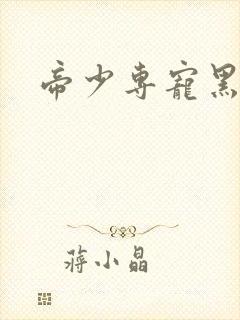 帝少专寵黑
蒋小晶